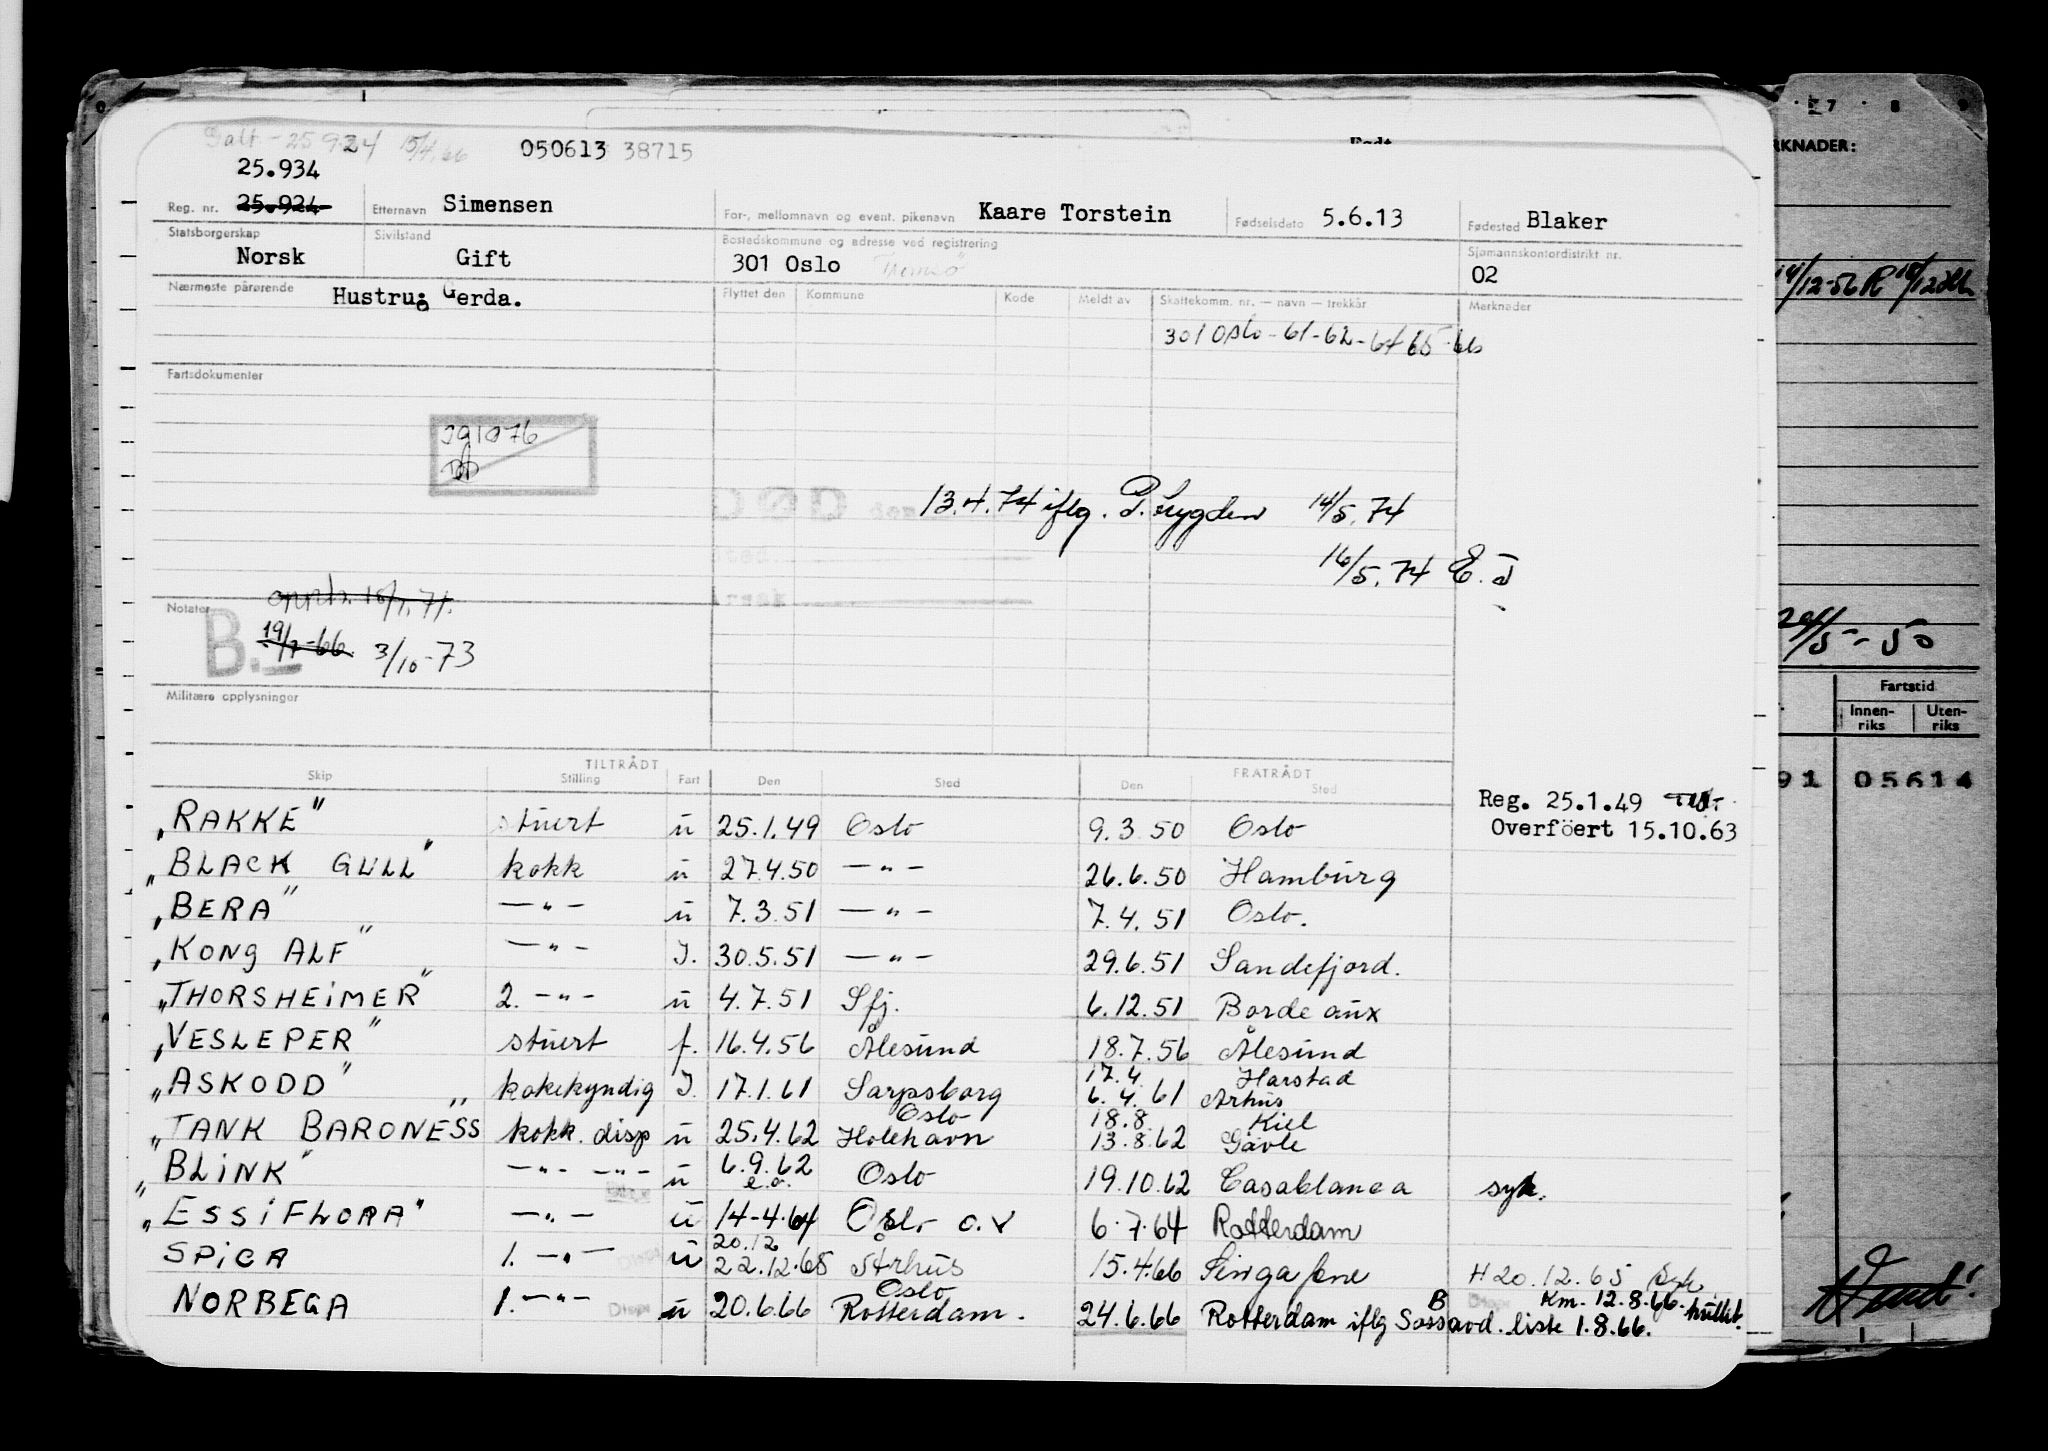 Galt - 25924 15/4.66
050613 38715
25.934
Reg. nr. 25.924 Etternavn Simensen For-, mellomnavn og event. pikenavn Kaare Torstein Fødselsdato 5.6.13 Fødested Blaker
Statsborgerskap Sivilstand Bostedskommune og adresse ved registrering Sjømannskontordistrikt nr.
Norsk Gift 301 Oslo 02
Nærmeste pårørende Hustru: Gerda. Flyttet den Kommune Kode Meldt av Skattekomm. nr. — navn — trekkår Merknader
301 Oslo - 61-62-64 65-66
Fartsdokumenter
DØD den 13.4.74 iflg. P. trygden 14/5.74
Sted
16/5.74 E. J
Årsak
Notater
B.
19/7-66 3/10-73
Militære opplysninger
TILTRÅDT FRATRÅDT
Skip Stilling Fart Den Sted Den Sted
Reg. 25.1.49
Overföert 15.10.63
"RAKKE" stuert u 25.1.49 Oslo 9.3.50 Oslo
"BLACK GULL" kokk u 27.4.50 —"— 26.6.50 Hamburg
"BERA" —"— u 7.3.51 —"— 7.4.51 Oslo.
"KONG ALF" —"— I. 30.5.51 —"— 29.6.51 Sandefjord.
"THORSHEIMER" 2. —"— u 4.7.51 Sfj. 6.12.51 Bordeaux
"VESLEPER" stuert f. 16.4.56 Ålesund 18.7.56 Ålesund
17.4. Harstad
"ASKODD" kokekyndig I. 17.1.61 Sarpsborg 6.4.61 Århus
Oslo 18.8. Kiel
"TANK BARONESS" kokk. disp u 25.4.62 Holehavn 13.8.62 Gävle
"BLINK" —"— —"— u 6.9.62 Oslo 19.10.62 Casablanca syk.
e.o.
"ESSI FLORA" —"— u 14-4-64 Oslo o.v 6.7.64 Rotterdam
20.12
SPICA 1. —"— u 22.12.65 Århus 15.4.66 Singapore H 20.12.65 Syk
Oslo Km. 12.8.66.
NORBEGA 1. —"— Disp. u 20.6.66 Rotterdam. 24.6.66 Rotterdam iflg Sassavd. liste 1.8.66.
B
27 8 9
RKNADER:
14/12-56 R
24/5-50
Fartstid
Innenriks Utenriks
91 05614
Vend!